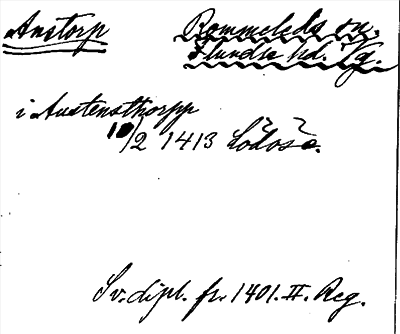 Anstorp Rommeleds sn.
Flundre hd. Vg.
i Austensthorpp
10/2 1413 Lödöse.
Sv. dipl. fr. 1401. II. Reg.